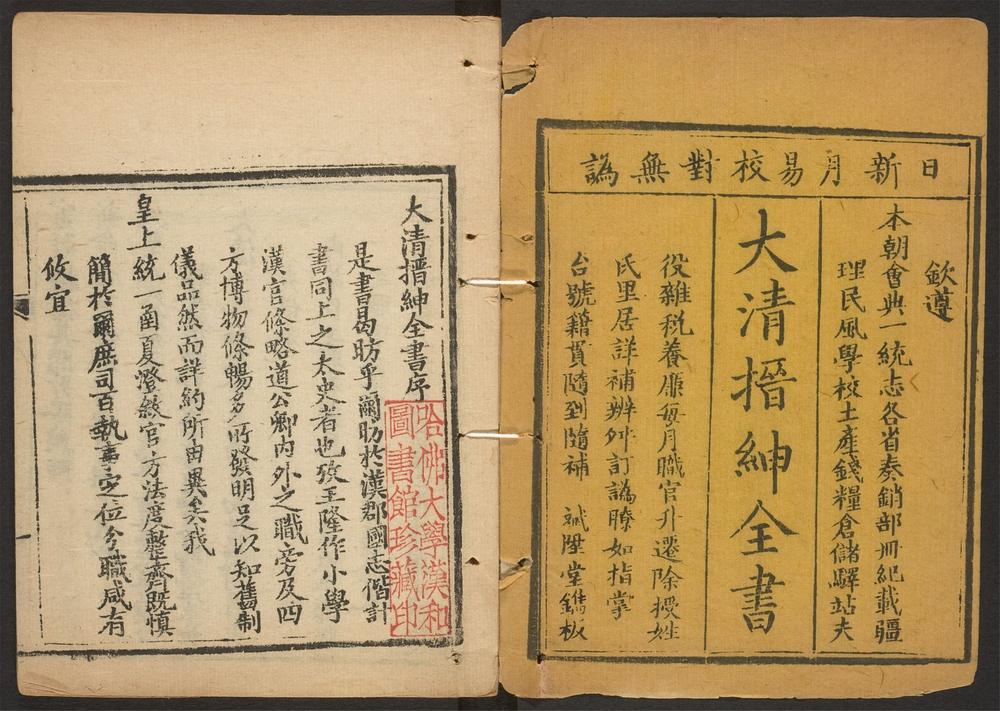 日新月易校對無譌
欽遵
本朝會典一統志各省奏銷部冊紀載疆
理民風學校土產錢糧倉儲驛站夫
大清搢紳全書
役雜稅養廉每月職官升遷除授姓
氏里居詳補辨舛訂譌瞭如指掌
台號籍貫隨到隨補 斌陞堂鐫板
大清搢紳全書序
是書曷昉乎蘭昉於漢郡國志偕計
書同上之太史者也攷王隆作小學
漢官條略道公卿內外之職旁及四
方博物條暢多所發明足以知舊制
儀品然而詳約所由異矣我
皇上統一函夏澄敘官方法度整齊既慎
簡於爾庶司百執事定位分職咸有
攸宜
哈佛大學漢和
圖書館珍藏印